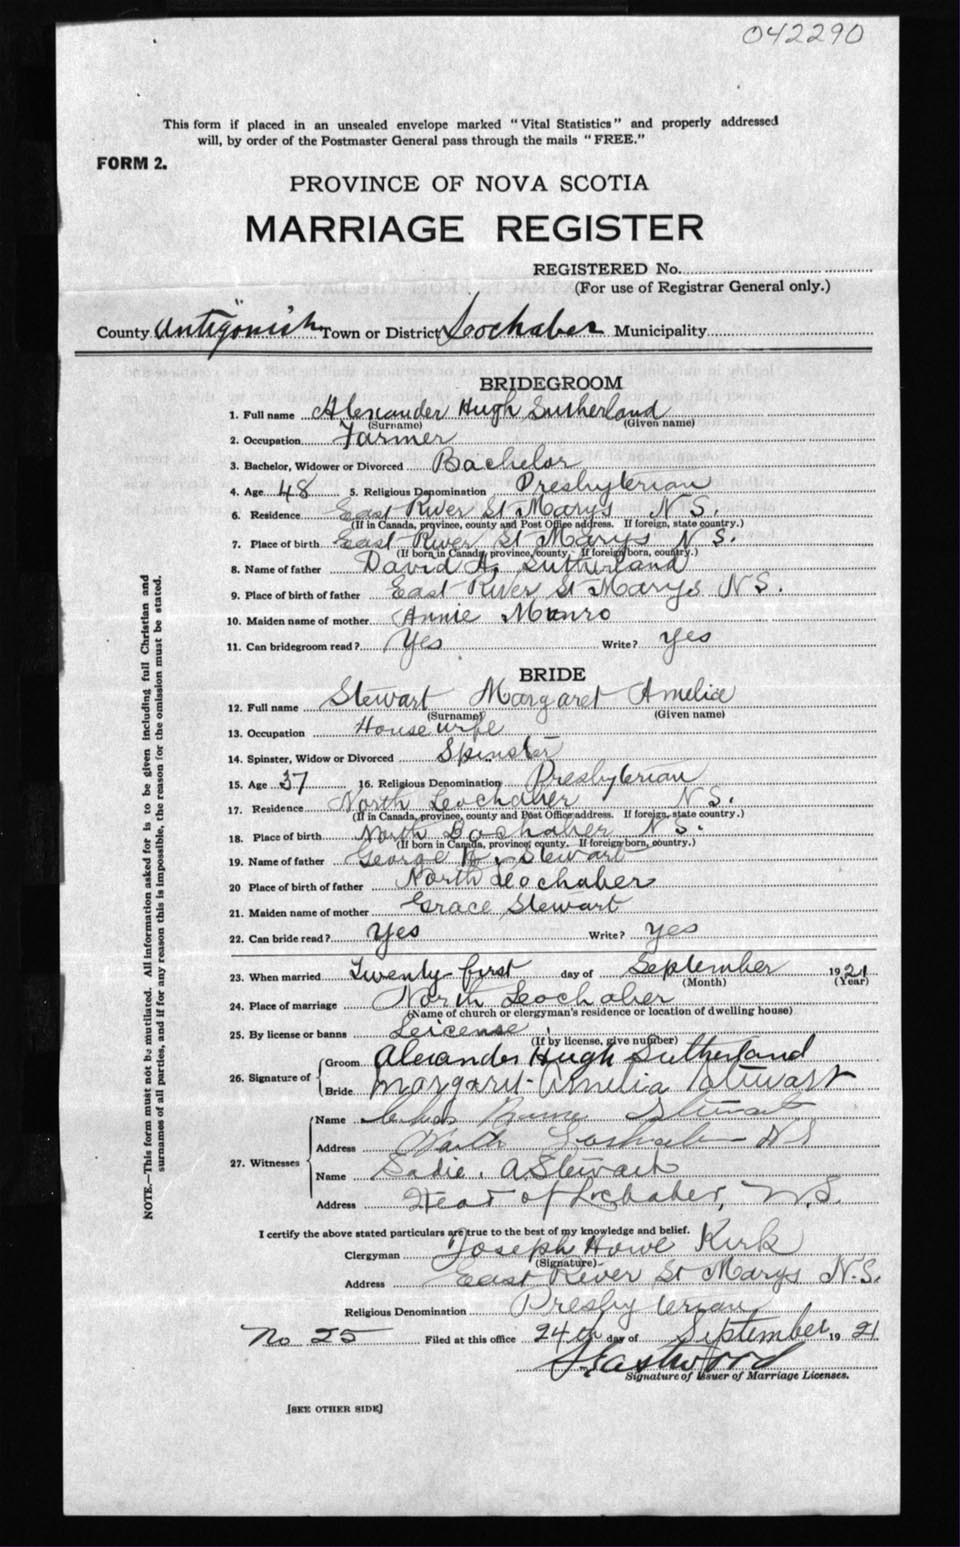 042290
This form if placed in an unsealed envelope marked "Vital Statistics" and properly addressed
will, by order of the Postmaster General pass through the mails "FREE."
FORM 2.
PROVINCE OF NOVA SCOTIA
MARRIAGE REGISTER
REGISTERED No.
(For use of Registrar General only.)
County Antigonish Town or District Lochaber Municipality
BRIDEGROOM
1. Full name Alexander Hugh Sutherland
(Surname) (Given name)
2. Occupation Farmer
3. Bachelor, Widower or Divorced Bachelor
4. Age 48 5. Religious Denomination Presbyterian
6. Residence East River St Marys N S.
(If in Canada, province, county and Post Office address. If foreign, state country.)
7. Place of birth East River St Marys N S.
(If born in Canada, province, county. If foreign born, country.)
8. Name of father David A. Sutherland
9. Place of birth of father East River St Marys N S.
10. Maiden name of mother Annie Munro
11. Can bridegroom read? Yes Write? yes
BRIDE
12. Full name Stewart Margaret Amelia
(Surname) (Given name)
13. Occupation House wife
14. Spinster, Widow or Divorced Spinster
15. Age 37 16. Religious Denomination Presbyterian
17. Residence North Lochaber N S.
(If in Canada, province, county and Post Office address. If foreign, state country.)
18. Place of birth North Lochaber N S.
(If born in Canada, province, county. If foreign born, country.)
19. Name of father George Stewart
20 Place of birth of father North Lochaber
21. Maiden name of mother Grace Stewart
22. Can bride read? Yes Write? yes
23. When married Twenty-first day of September 1921
(Month) (Year)
24. Place of marriage North Lochaber
(Name of church or clergyman's residence or location of dwelling house)
25. By license or banns Leicense
(If by license, give number)
26. Signature of Groom Alexander Hugh Sutherland
Bride Margaret Amelia Stewart
27. Witnesses Name Stewart
Address North Lochaber N S
Name Sadie. A Stewart
Address Head of Lochaber, N.S.
I certify the above stated particulars are true to the best of my knowledge and belief.
Clergyman Joseph Howe Kirk
(Signature)
Address East River St Marys N.S.
Religious Denomination Presbyterian
No 25 Filed at this office 24th day of September 1921
Eastwood
Signature of Issuer of Marriage Licenses.
[SEE OTHER SIDE]
NOTE.—This form must not be mutilated. All information asked for is to be given including full Christian and
surnames of all parties, and if for any reason this is impossible, the reason for the omission must be stated.